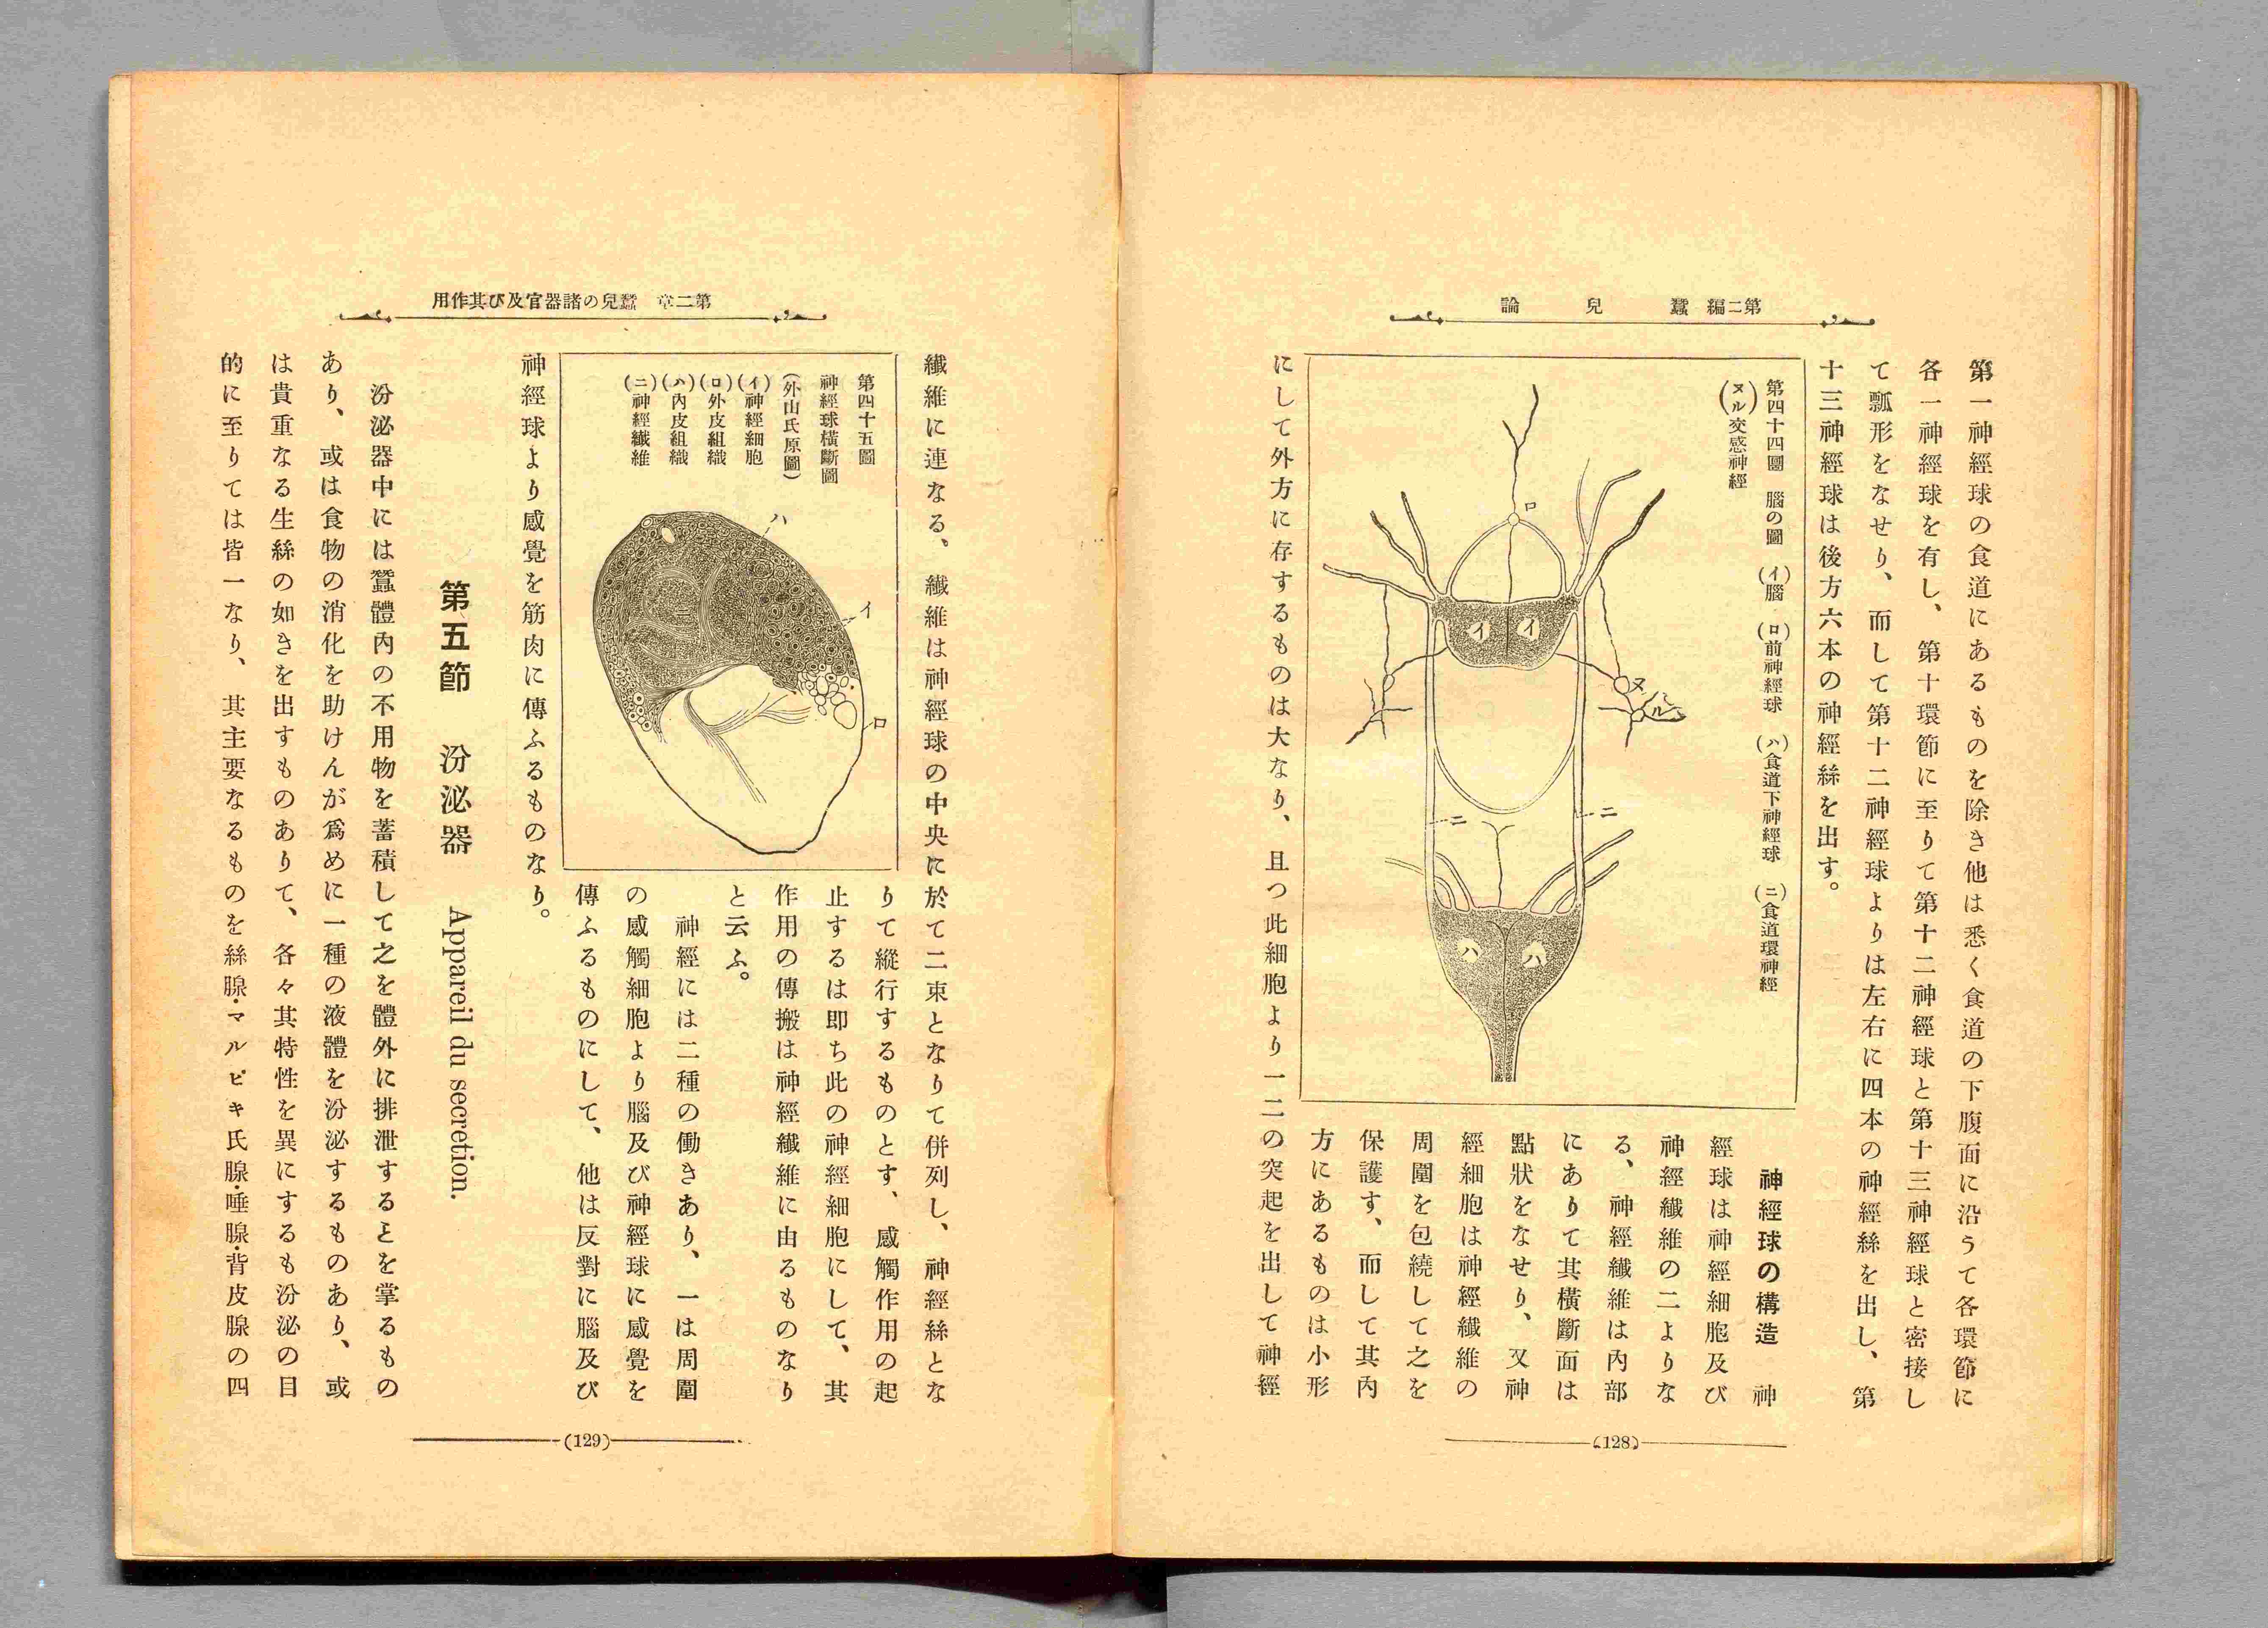 第二編　蠶　兒　論
第一神經球の食道にあるものを除き他は悉く食道の下腹面に沿うて各環節に
各一神經球を有し、第十環節に至りて第十二神經球と第十三神經球と密接し
て瓢形をなせり、而して第十二神經球よりは左右に四本の神經絲を出し、第
十三神經球は後方六本の神經絲を出す。
第四十四圖　腦の圖　(イ)腦　(ロ)前神經球　(ハ)食道下神經球　(ニ)食道環神經
(ヌル)交感神經
ロ
イ
イ
ヌ
ル
ニ
ニ
ハ
ハ
神經球の構造　神
經球は神經細胞及び
神經纖維の二よりな
る、神經纖維は內部
にありて其橫斷面は
點狀をなせり、又神
經細胞は神經纖維の
周圍を包繞して之を
保護す、而して其內
方にあるものは小形
にして外方に存するものは大なり、且つ此細胞より一二の突起を出して神經
(128)
第二章　蠶兒の諸器官及び其作用
纖維に連なる、纖維は神經球の中央に於て二束となりて併列し、神經絲とな
第四十五圖
神經球橫斷圖
(外山氏原圖)
(イ)神經細胞
(ロ)外皮組織
(ハ)內皮組織
(ニ)神經纖維
ハ
イ
ニ
ロ
りて縱行するものとす、感觸作用の起
止するは卽ち此の神經細胞にして、其
作用の傳搬は神經纖維に由るものなり
と云ふ。
神經には二種の働きあり、一は周圍
の感觸細胞より腦及び神經球に感覺を
傳ふるものにして、他は反對に腦及び
神經球より感覺を筋肉に傳ふるものなり。
第五節　汾泌器　Appareil du secretion.
汾泌器中には蠶體內の不用物を蓄積して之を體外に排泄するとを掌るもの
あり、或は食物の消化を助けんが爲めに一種の液體を汾泌するものあり、或
は貴重なる生絲の如きを出すものありて、各々其特性を異にするも汾泌の目
的に至りては皆一なり、其主要なるものを絲腺・マルピキ氏腺・唾腺・背皮腺の四
(129)